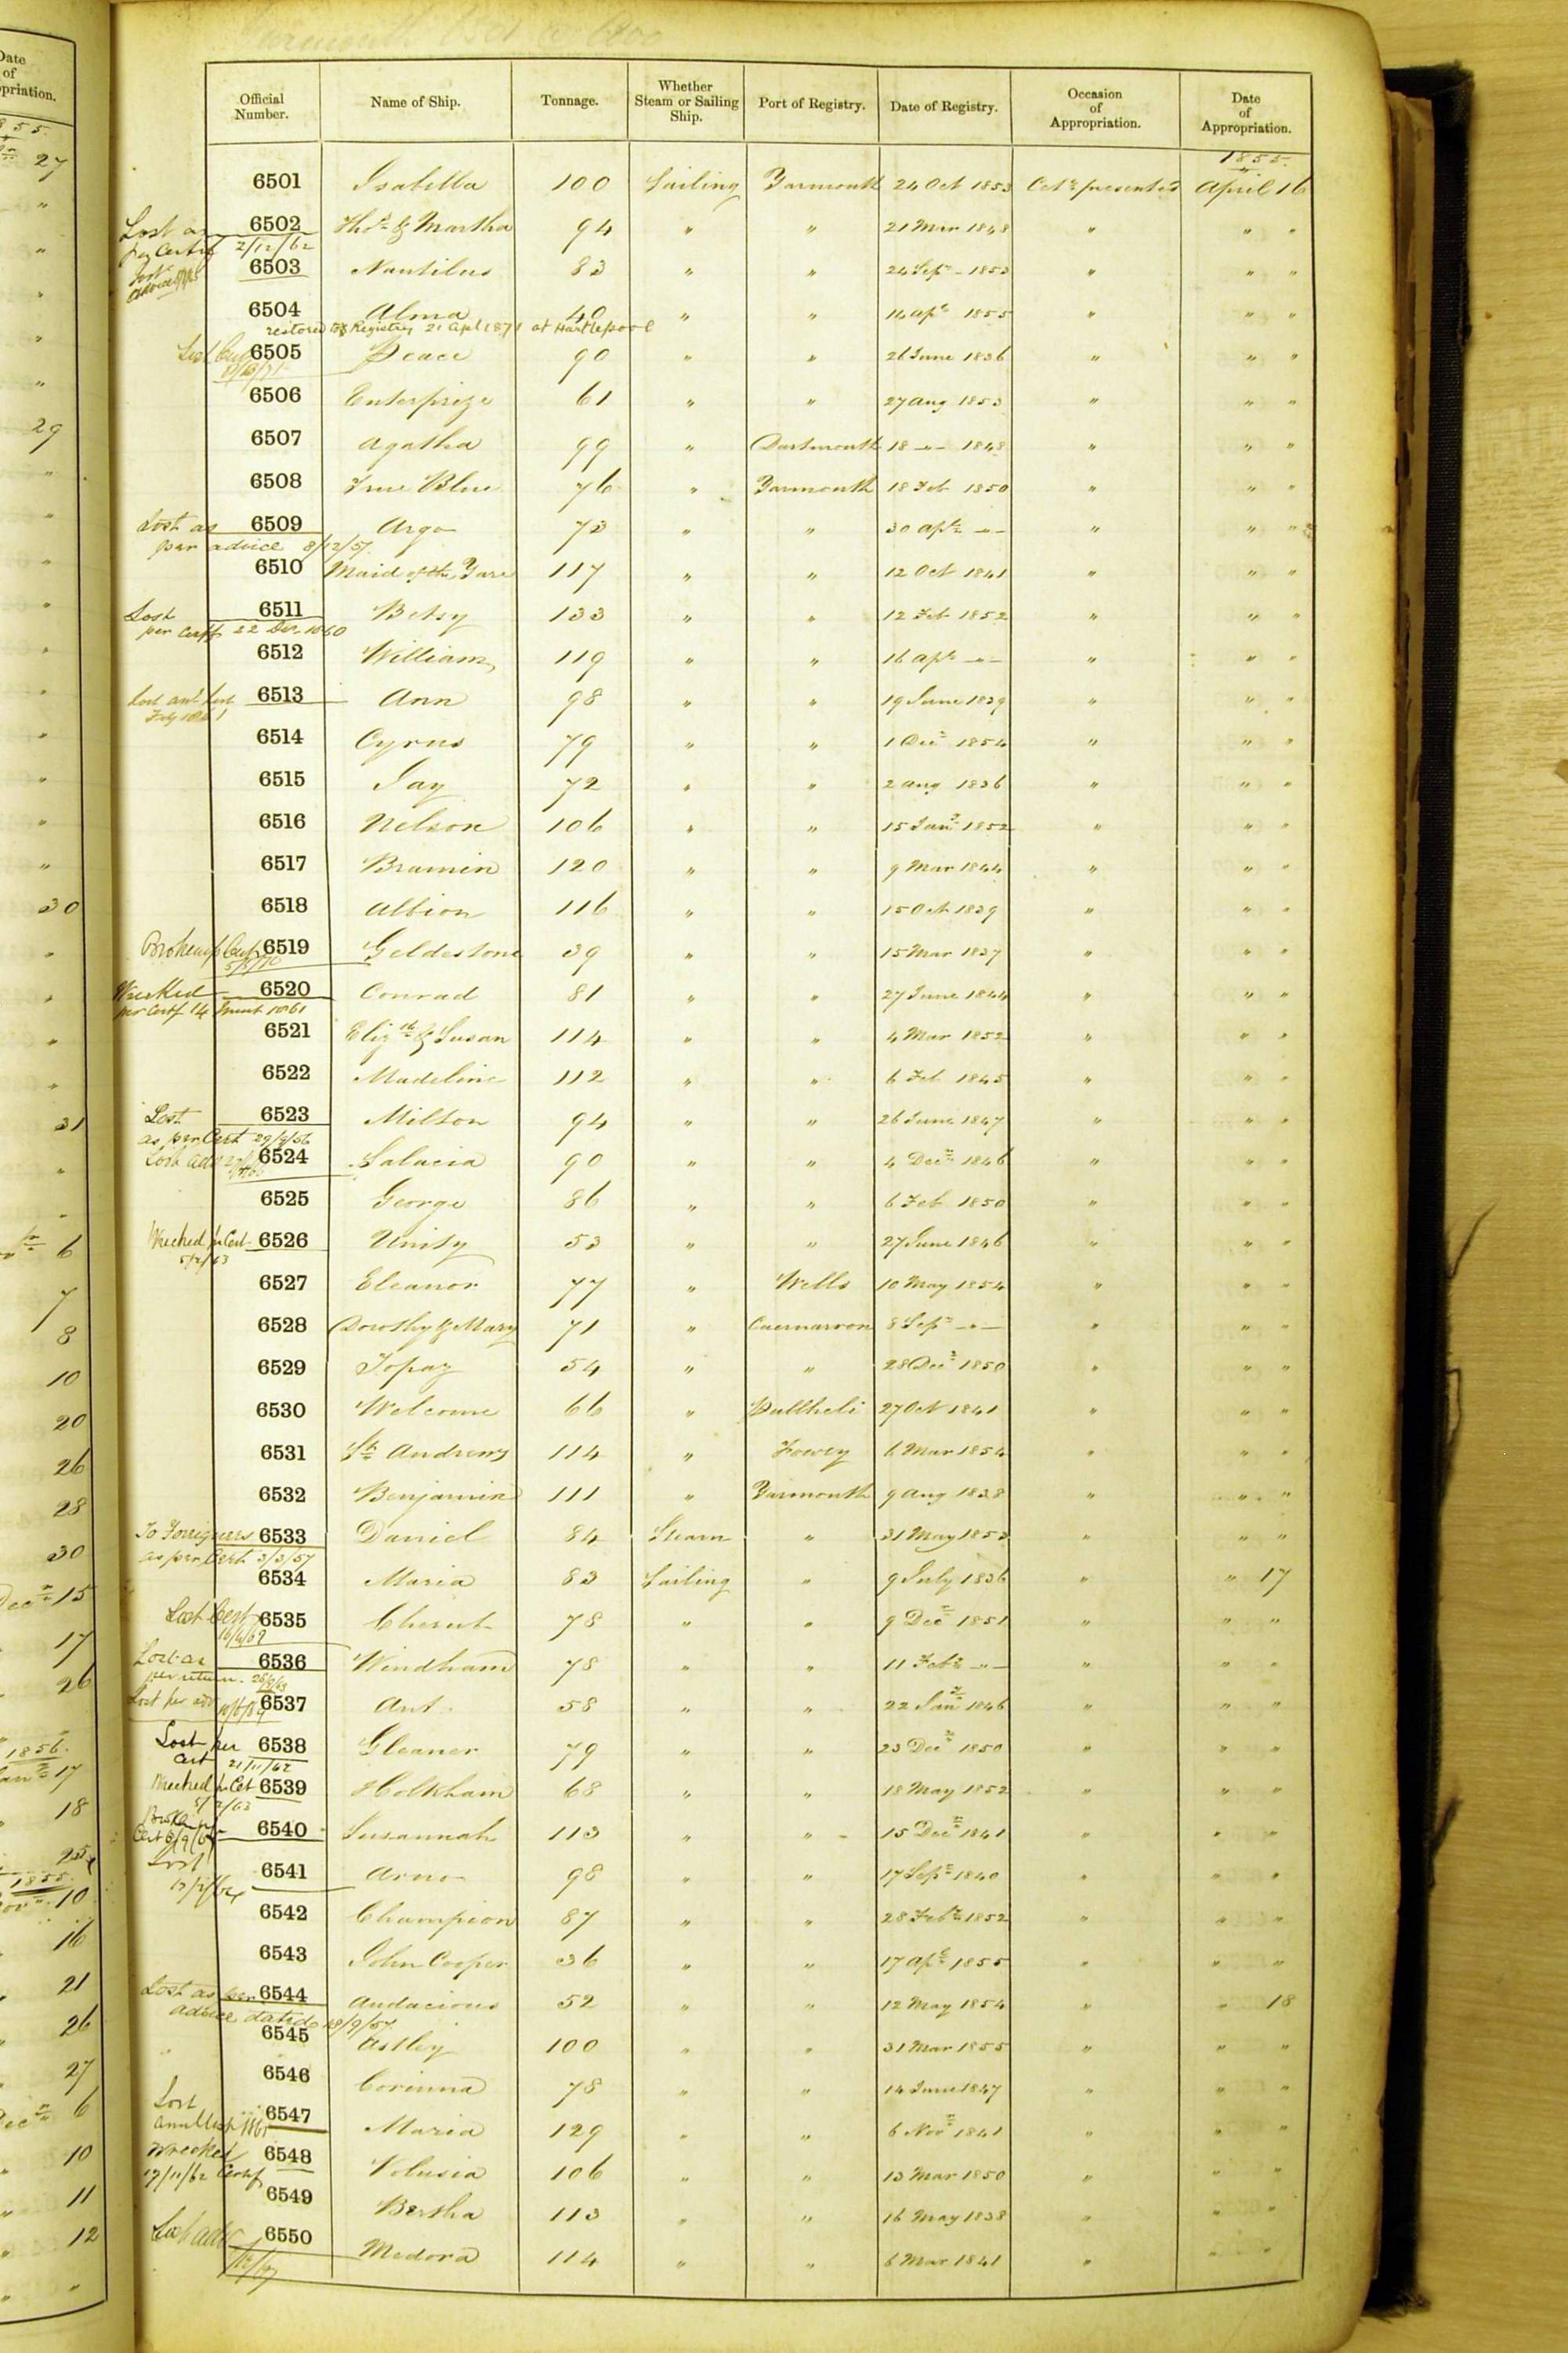 Yarmouth 6501 to 6600
Official Number. Name of Ship. Tonnage. Whether Steam or Sailing Ship. Port of Registry. Date of Registry. Occasion of Appropriation. Date of Appropriation.
1855.
6501 Isabella 100 Sailing Yarmouth 24 Oct 1853 presented April 16
6502 Thos & Martha 94 " " 21 Mar 1848 " " "
Lost as per Certif 2/12/62
6503 Nautilus 83 " " 24 Sepr 1853 " " "
6504 Alma 40 " " 14 apl 1855 " " "
restored to Registry 21 Apl 1871 at Hartlepool
6505 Peace 90 " " 26 June 1836 " " "
6506 Enterprize 61 " " 27 Aug 1853 " " "
6507 Agatha 99 " Dartmouth 18 -"- 1848 " " "
6508 True Blue 76 " Yarmouth 18 Feb 1850 " " "
6509 Argo 73 " " 30 apl -"- " " "
Lost as per advice 8/12/57
6510 Maid of the Yare 117 " " 12 Oct 1841 " " "
6511 Betsy 133 " " 12 Feb 1852 " " "
Lost per Certf 22 Dec 1860
6512 William 119 " " 16 apl -"- " " "
6513 Ann 98 " " 19 June 1839 " " "
6514 Cyrus 79 " " 1 Decr 1854 " " "
6515 Jay 72 " " 2 Aug 1836 " " "
6516 Nelson 106 " " 15 Jany 1852 " " "
6517 Bramin 120 " " 9 Mar 1844 " " "
6518 Albion 116 " " 15 Oct 1839 " " "
Broken up Cert 6519 Geldestone 39 " " 15 Mar 1837 " " "
Wrecked 6520 Conrad 81 " " 27 June 1844 " " "
per Certf 14 1861
6521 Elizth & Susan 114 " " 4 Mar 1852 " " "
6522 Madeline 112 " " 6 Feb 1845 " " "
Lost 6523 Milton 94 " " 26 June 1847 " " "
as per Cert 29/9/56
6524 Salacia 90 " " 4 Decr 1846 " " "
6525 George 86 " " 6 Feb 1850 " " "
Wrecked pr Cert 6526 Unity 53 " " 27 June 1846 " " "
5/2/63
6527 Eleanor 77 " Wells 10 May 1854 " " "
6528 Dorothy & Mary 71 " Caernarvon 8 Sepr -"- " " "
6529 Topaz 54 " " 28 Decr 1850 " " "
6530 Welcome 66 " Pullheli 27 Oct 1841 " " "
6531 St Andrews 114 " Fowey 6 Mar 1854 " " "
6532 Benjamin 111 " Yarmouth 9 Aug 1828 " " "
To Foreigners 6533 Daniel 84 Steam " 31 May 1853 " " "
as per Cert 3/3/57
6534 Maria 83 Sailing " 9 July 1836 " " 17
Lost Cert 6535 Cherub 78 " " 9 Decr 1851 " " "
Lost as 6536 Windham 78 " " 11 Feby -"- " " "
per return
6537 Ant 58 " " 22 Jany 1846 " " "
Lost per 6538 Gleaner 79 " " 23 Decr 1850 " " "
Cert 21/11/62
Wrecked pr Cert 6539 Holkham 68 " " 18 May 1852 " " "
5/2/63
6540 Susannah 113 " " 15 Decr 1841 " " "
Lost 6541 Arno 98 " " 17 Sepr 1840 " " "
6542 Champion 87 " " 28 Feby 1852 " " "
6543 John Cooper 36 " " 17 apl 1855 " " "
Lost as per 6544 Audacious 52 " " 12 May 1854 " " 18
advice dated
6545 Astley 100 " " 31 Mar 1855 " " "
6546 Corinna 78 " " 14 June 1847 " " "
Lost
6547 Maria 129 " " 6 Novr 1841 " " "
Wrecked 6548 Volusia 106 " " 13 Mar 1850 " " "
17/11/62 Certf
6549 Bertha 113 " " 16 May 1838 " " "
6550 Medora 114 " " 6 Mar 1841 " " "